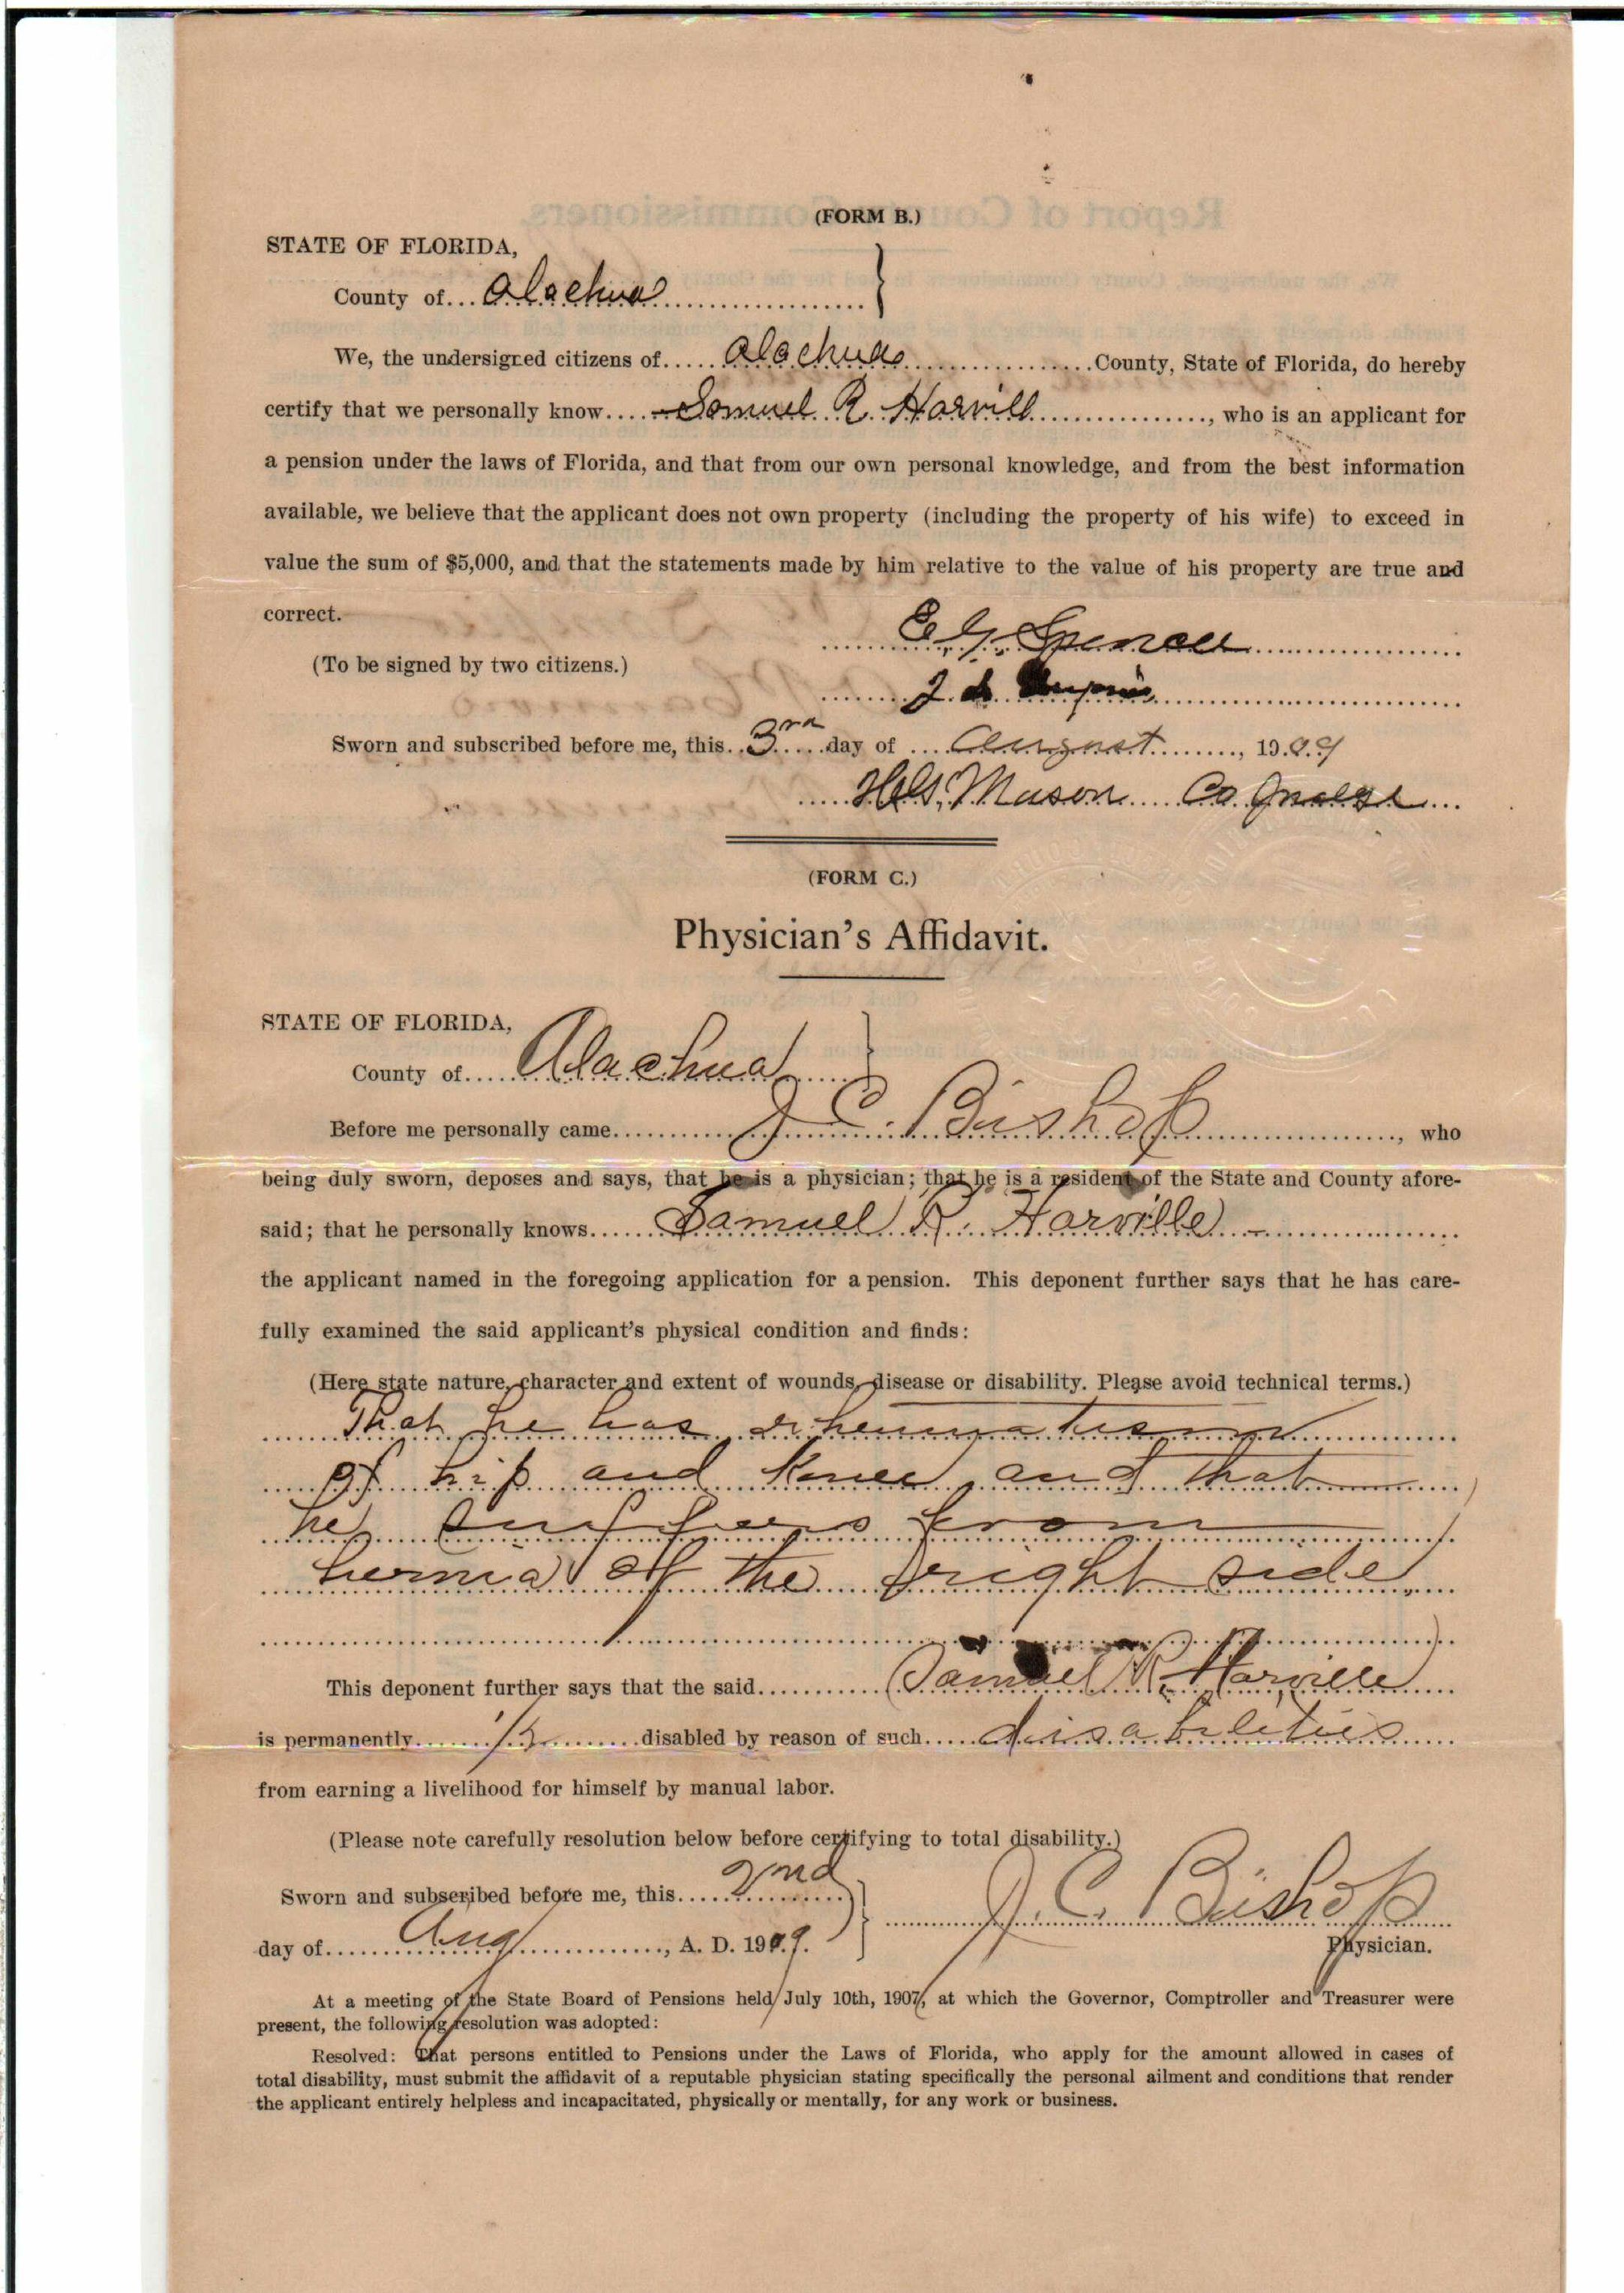 (FORM B.)
STATE OF FLORIDA,
County of Alachua
We, the undersigned citizens of Alachua County, State of Florida, do hereby
certify that we personally know Samuel R. Harvill, who is an applicant for
a pension under the laws of Florida, and that from our own personal knowledge, and from the best information
available, we believe that the applicant does not own property (including the property of his wife) to exceed in
value the sum of $5,000, and that the statements made by him relative to the value of his property are true and
correct.
E. G. Spencer
(To be signed by two citizens.)
Sworn and subscribed before me, this 3rd day of August, 1909
Mason Co Judge
(FORM C.)
Physician's Affidavit.
STATE OF FLORIDA,
County of Alachua
Before me personally came J. C. Bishop, who
being duly sworn, deposes and says, that he is a physician; that he is a resident of the State and County afore-
said; that he personally knows Samuel R. Harville
the applicant named in the foregoing application for a pension. This deponent further says that he has care-
fully examined the said applicant's physical condition and finds:
(Here state nature, character and extent of wounds, disease or disability. Please avoid technical terms.)
That he has rheumatism
of hip and knee, and that
he suffers from
hernia of the right side
This deponent further says that the said Samuel R. Harville
is permanently 1/2 disabled by reason of such disabilities
from earning a livelihood for himself by manual labor.
(Please note carefully resolution below before certifying to total disability.)
Sworn and subscribed before me, this 2nd
J. C. Bishop
day of Aug, A. D. 1909.
Physician.
At a meeting of the State Board of Pensions held July 10th, 1907, at which the Governor, Comptroller and Treasurer were
present, the following resolution was adopted:
Resolved: That persons entitled to Pensions under the Laws of Florida, who apply for the amount allowed in cases of
total disability, must submit the affidavit of a reputable physician stating specifically the personal ailment and conditions that render
the applicant entirely helpless and incapacitated, physically or mentally, for any work or business.